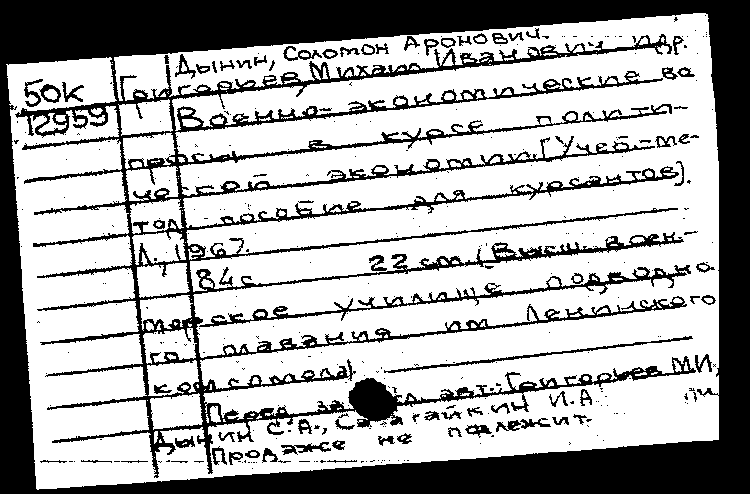 Дынин, Соломон Аронович.
50к Григорьев, Михаил Иванович и др.
12959 Военно-экономические во
просы в курсе полити-
ческой экономии. [Учеб.-ме-
тод. пособие для курсантов].
Л., 1967.
84с. 22 см. (Высш. воен-
морское училище подводно
го плавания им Ленинского
комсомола)
Перед загл. авт.: Григорьев М.И,
Дынин С.А., И.А
Продаже не подлежит